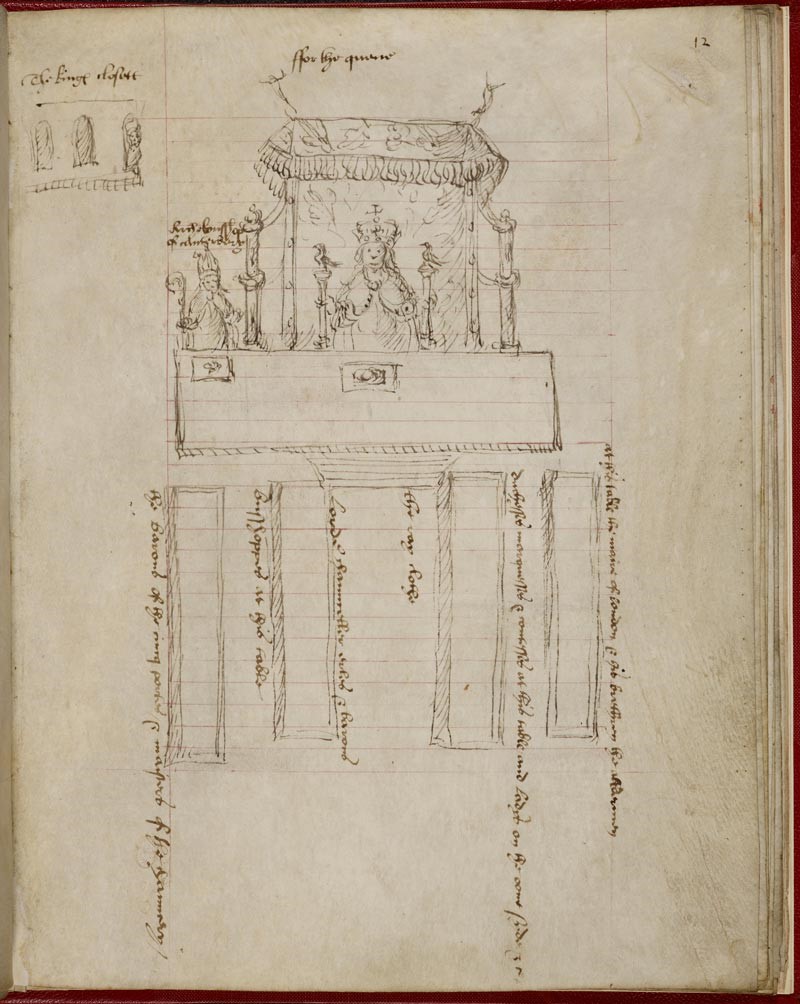 12
ffor the quene
The kinges closett
Archebusshop
of canterbery
the barons of the cinq portes & maisters of the chauncery
Busshoppes at this table
lorde chaunceller erles & barons
the ray clothe
duchesses marquesses & countesses at this table and ladys on the oone syde
at this table the maire of london & his brethren the aldermen